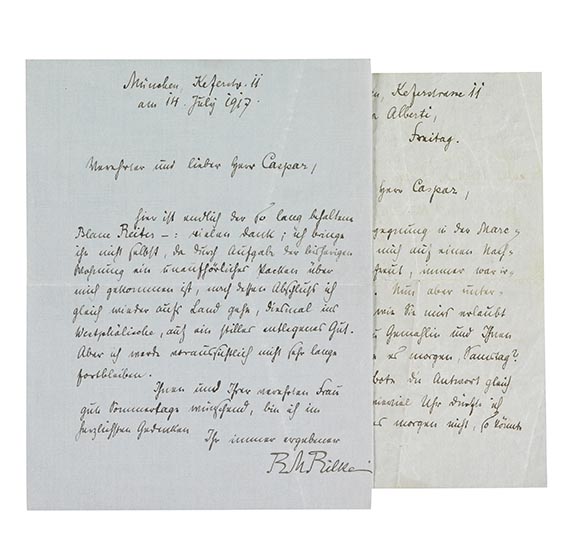 München, Keferstr. 11
am 14. July 1917.
Verehrter und lieber Herr Caspar,
hier ist endlich der so lang behaltene
Blaue Reiter –: vielen Dank; ich bringe
ihn nicht selbst, da durch Aufgabe der bisherigen
Wohnung ein unaufhörliches Packen über
mich gekommen ist, nach dessen Abschluss ich
gleich wieder aufs Land gehe, diesmal ins
Westphälische, auf ein stilles entlegenes Gut.
Aber ich werde voraussichtlich nicht sehr lange
fortbleiben.
Ihnen und Ihrer verehrten Frau
gute Sommertage wünschend, bin ich im
herzlichsten Gedenken
Ihr immer ergebener
RMRilke
Keferstrasse 11
Alberti,
Freitag.
Herr Caspar,
in der Marc-
mich auf einen Nach-
freut, immer war ir-
Nun aber unter-
wie Sie mirs erlaubt
Gemahlin und Ihnen
es morgen, Samstag?
bote die Antwort gleich
wieviel Uhr dürfte ich
es morgen nicht, so könnte